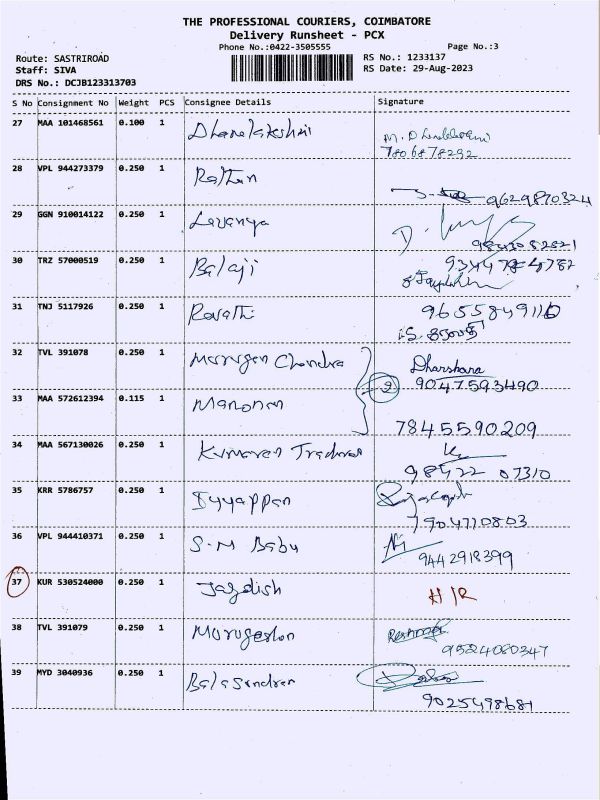 THE PROFESSIONAL COURIERS, COIMBATORE
Delivery Runsheet - PCX
Phone No.:0422-3505555
Page No.:3
Route: SASTRIROAD
RS No.: 1233137
Staff: SIVA
RS Date: 29-Aug-2023
DRS No.: DCJB123313703
S No Consignment No Weight PCS Consignee Details Signature
27 MAA 101468561 0.100 1 Dhanalakshmi
7806878292
28 VPL 944273379 0.250 1 Rathan
9629870324
29 GGN 910014122 0.250 1 Lavanya
30 TRZ 57000519 0.250 1 Balaji
31 TNJ 5117926 0.250 1 Revathi
32 TVL 391078 0.250 1 Murugan Chandra Dharshana
2 9047593490
33 MAA 572612394 0.115 1 Manonan
7845590209
34 MAA 567130026 0.250 1 Kumaran Traders
98422 07310
35 KRR 5786757 0.250 1 Iyyappan
7904710803
36 VPL 944410371 0.250 1 S.M Babu
9442918399
37 KUR 530524000 0.250 1 Jagdish H/R
38 TVL 391079 0.250 1 Murugeshon
9524080347
39 MYD 3040936 0.250 1 Balasendran
9025498681